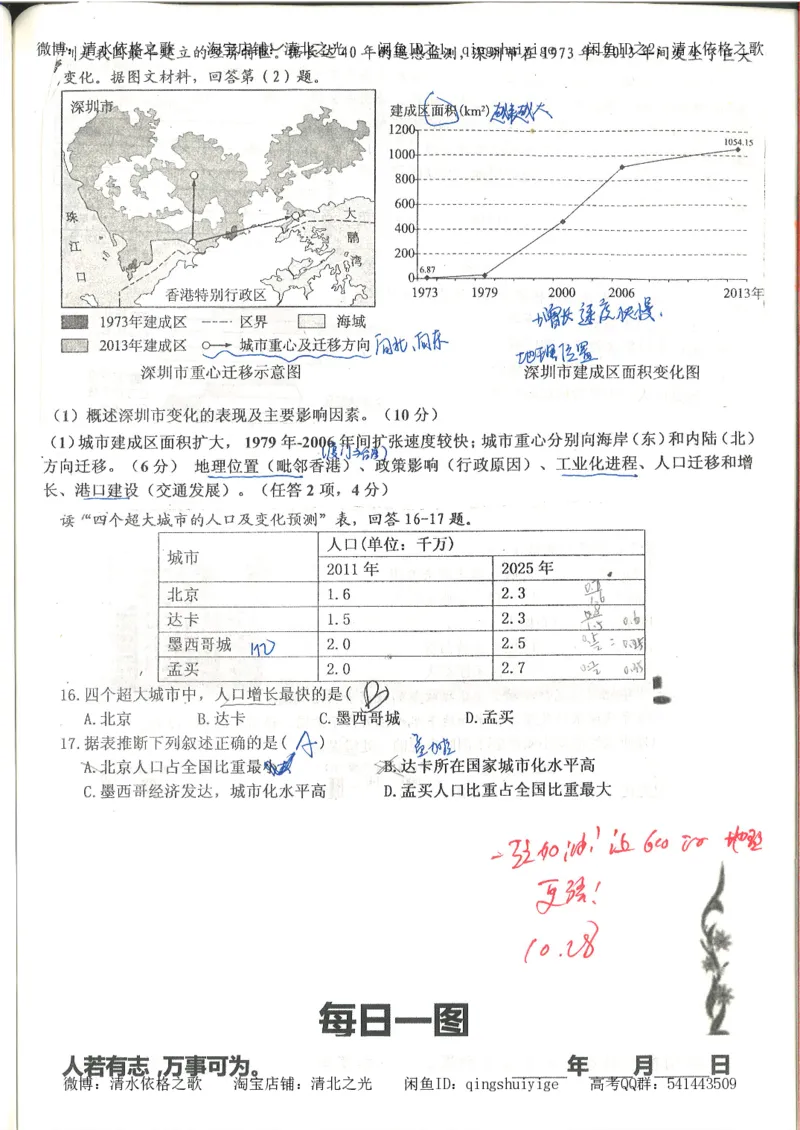 微博：清水依格之歌 淘宝店铺：清北之光 闲鱼ID之1：qingshuiyige 闲鱼ID之2：清水依格之歌
圳是我国最早建立的经济特区。据长达40年的遥感监测，深圳市在1973年-2013年间发生了巨大
变化。据图文材料，回答第（2）题。
深圳市
珠江口
大鹏湾
香港特别行政区
1973年建成区 区界 海域
2013年建成区 城市重心及迁移方向 向北、向东
深圳市重心迁移示意图
建成区面积(km²)
1200
1000
800
600
400
200
0
6.87
1054.15
1973 1979 2000 2006 2013年
增长速度快慢.
地理位置
深圳市建成区面积变化图
（1）概述深圳市变化的表现及主要影响因素。（10分）
（1）城市建成区面积扩大，1979年-2006年间扩张速度较快；城市重心分别向海岸（东）和内陆（北）
方向迁移。（6分） 地理位置（毗邻香港）、政策影响（行政原因）、工业化进程、人口迁移和增
长、港口建设（交通发展）。（任答2项，4分）
读“四个超大城市的人口及变化预测”表，回答16-17题。
城市 人口(单位：千万)
2011年 2025年
北京 1.6 2.3
达卡 1.5 2.3
墨西哥城 2.0 2.5
孟买 2.0 2.7
16.四个超大城市中，人口增长最快的是( B )
A.北京 B.达卡 C.墨西哥城 D.孟买
17.据表推断下列叙述正确的是( A )
A.北京人口占全国比重最小 B.达卡所在国家城市化水平高
C.墨西哥经济发达，城市化水平高 D.孟买人口比重占全国比重最大
更强！
10.28
每日一图
人若有志,万事可为。 年 月 日
微博：清水依格之歌 淘宝店铺：清北之光 闲鱼ID：qingshuiyige 高考QQ群：541443509